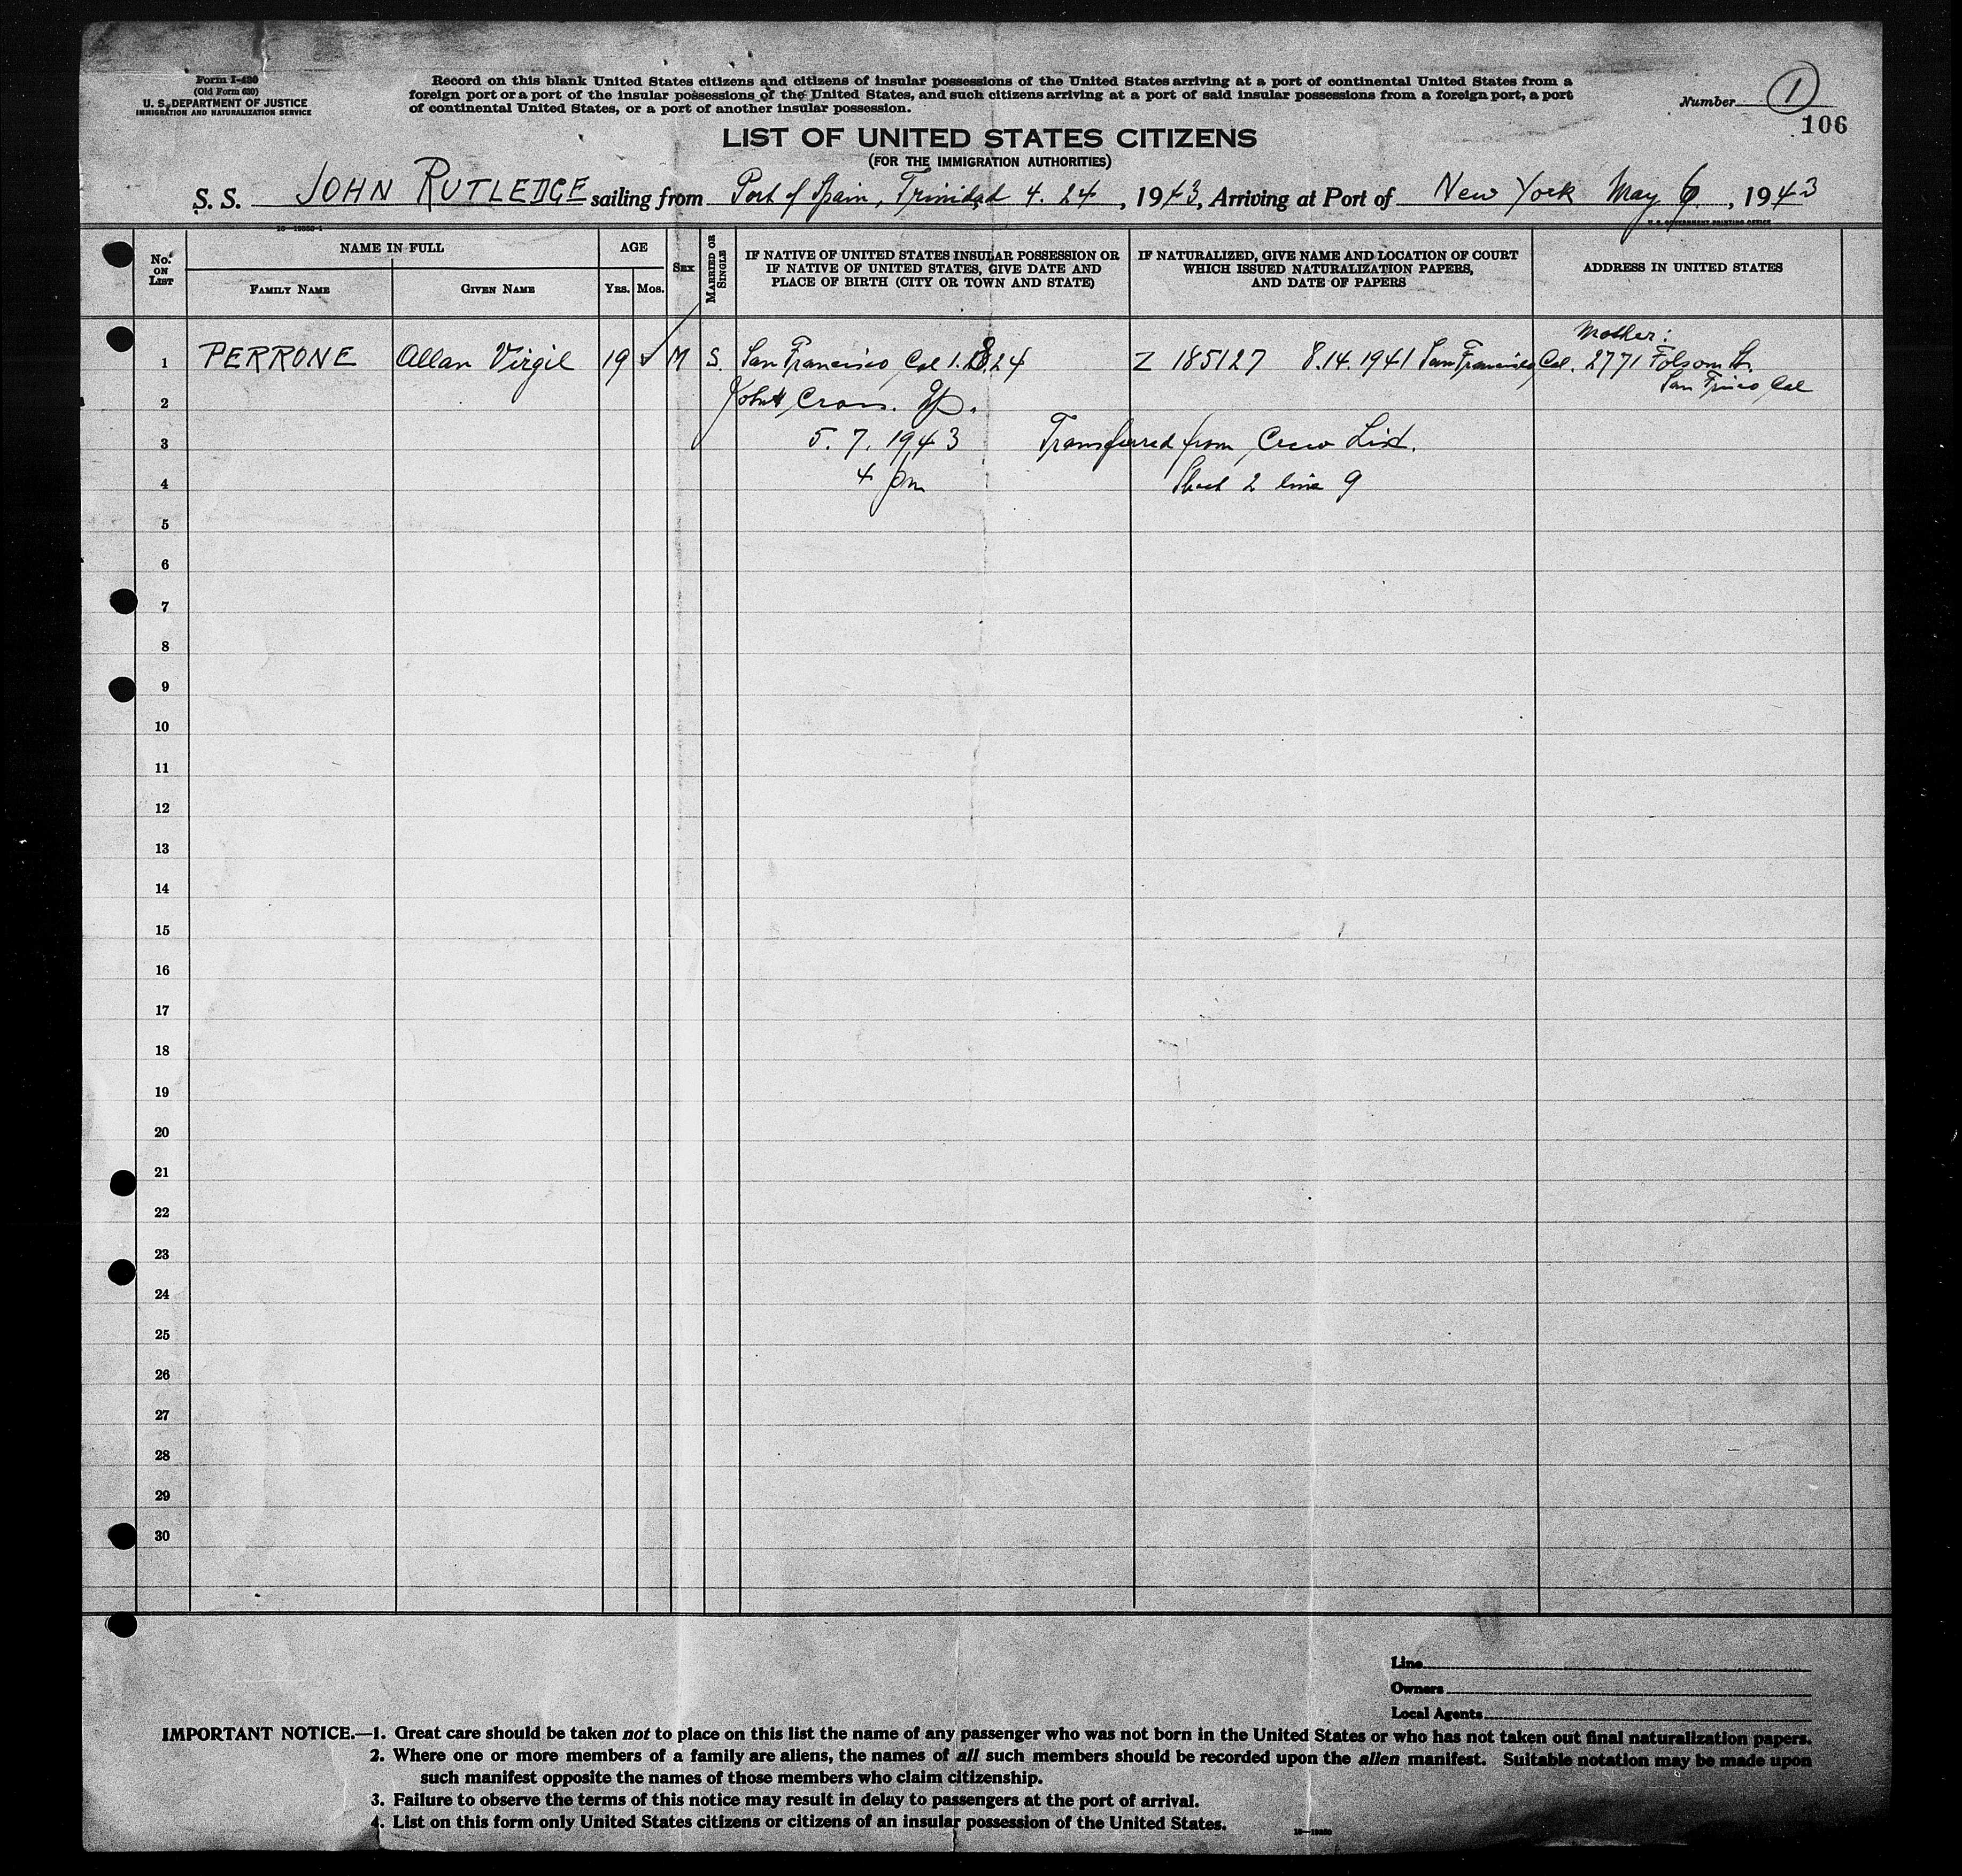 Form I-430
(Old Form 630)
U. S. DEPARTMENT OF JUSTICE
IMMIGRATION AND NATURALIZATION SERVICE
Record on this blank United States citizens and citizens of insular possessions of the United States arriving at a port of continental United States from a
foreign port or a port of the insular possessions of the United States, and such citizens arriving at a port of said insular possessions from a foreign port, a port
of continental United States, or a port of another insular possession.
Number 1
106
LIST OF UNITED STATES CITIZENS
(FOR THE IMMIGRATION AUTHORITIES)
S. S. JOHN RUTLEDGE sailing from Port of Spain, Trinidad 4. 24, 1943, Arriving at Port of New York May 6, 1943
U. S. GOVERNMENT PRINTING OFFICE
No. ON LIST
NAME IN FULL
FAMILY NAME
GIVEN NAME
AGE
YRS. MOS.
SEX
MARRIED OR SINGLE
IF NATIVE OF UNITED STATES INSULAR POSSESSION OR
IF NATIVE OF UNITED STATES, GIVE DATE AND
PLACE OF BIRTH (CITY OR TOWN AND STATE)
IF NATURALIZED, GIVE NAME AND LOCATION OF COURT
WHICH ISSUED NATURALIZATION PAPERS,
AND DATE OF PAPERS
ADDRESS IN UNITED STATES
Mother:
1 PERRONE Allan Virgil 19 M S. San Francisco Cal 24 Z 185127 8.14.1941 San Francisco, Cal. 2771 Folsom St.
San Frisco Cal
2 John Cross.
3 5. 7. 1943 Transferred from Crew List.
4 4 pm Sheet 2 line 9
5
6
7
8
9
10
11
12
13
14
15
16
17
18
19
20
21
22
23
24
25
26
27
28
29
30
Line
Owners
Local Agents
IMPORTANT NOTICE.—1. Great care should be taken not to place on this list the name of any passenger who was not born in the United States or who has not taken out final naturalization papers.
2. Where one or more members of a family are aliens, the names of all such members should be recorded upon the alien manifest. Suitable notation may be made upon
such manifest opposite the names of those members who claim citizenship.
3. Failure to observe the terms of this notice may result in delay to passengers at the port of arrival.
4. List on this form only United States citizens or citizens of an insular possession of the United States.